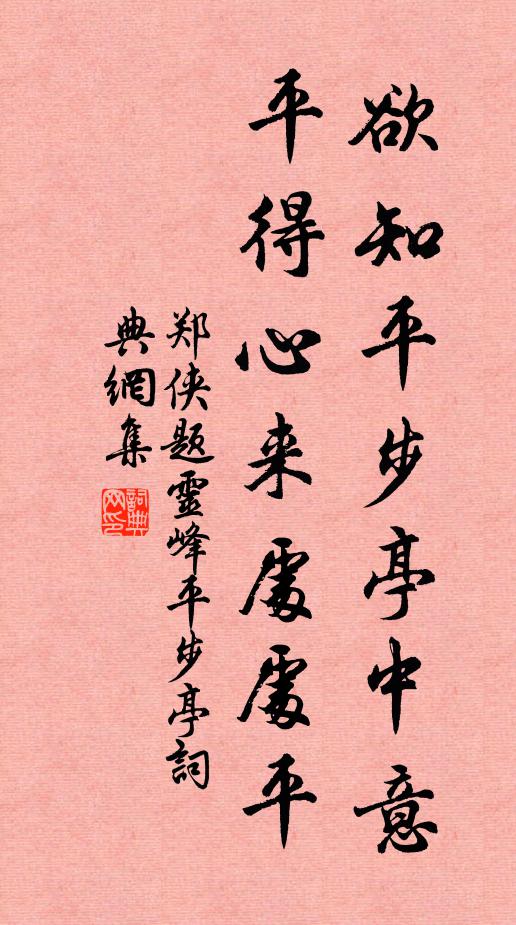 欲知平步亭中意
平得心来處處平
郑侠题靈峰平步亭詞
典網集
詞典網印